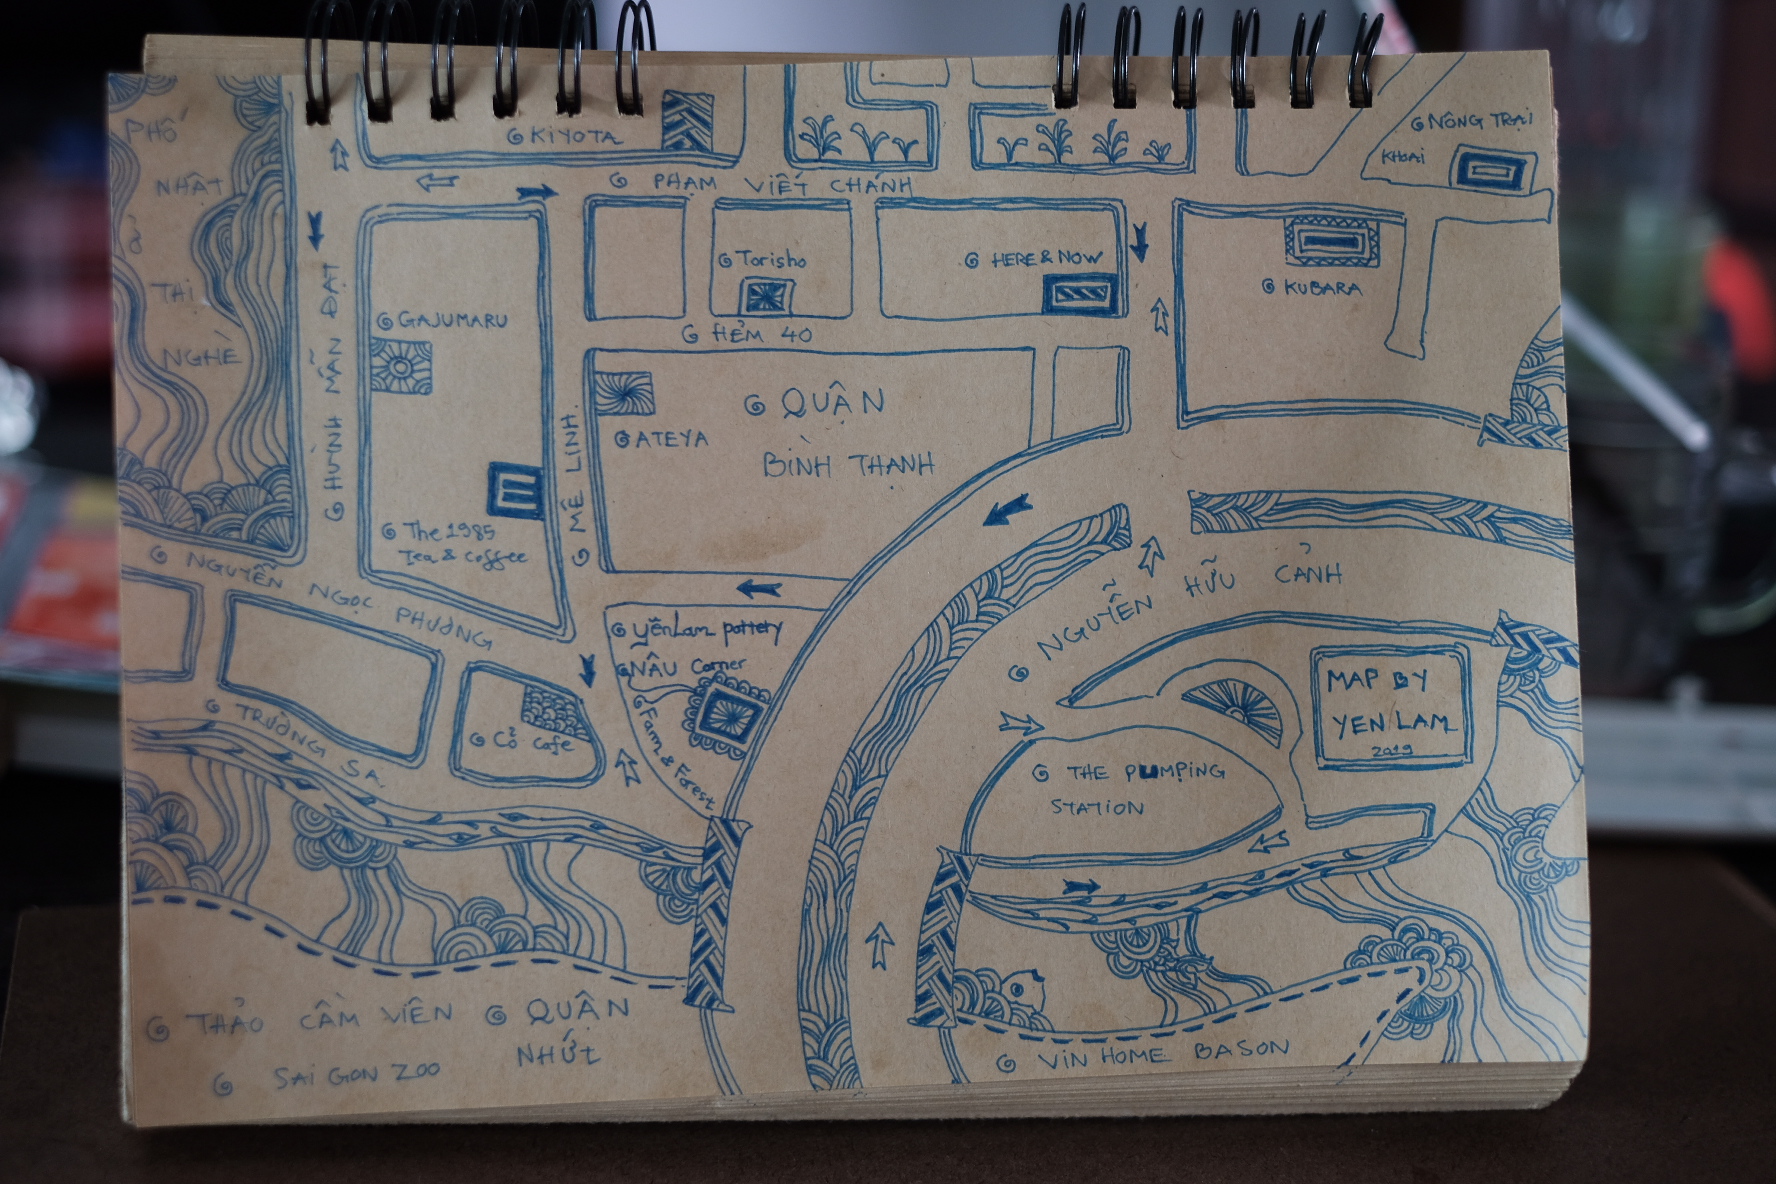 PHỐ
NHẬT
Ở
THỊ
NGHÈ
KIYOTA
PHẠM VIẾT CHÁNH
NÔNG TRẠI
KHOAI
HUỲNH MẪN ĐẠT
GAJUMARU
The 1985
Tea & Coffee
MÊ LINH
Torisho
HERE & NOW
KUBARA
HẺM 40
ATEYA
QUẬN
BÌNH THẠNH
NGUYỄN NGỌC PHƯƠNG
TRƯỜNG SA
Cổ Cafe
YênLam pottery
NÂU Corner
Farm & Forest
NGUYỄN HỮU CẢNH
MAP BY
YEN LAM
2019
THE PUMPING
STATION
THẢO CẦM VIÊN
SAI GON ZOO
QUẬN
NHỨT
VIN HOME BASON